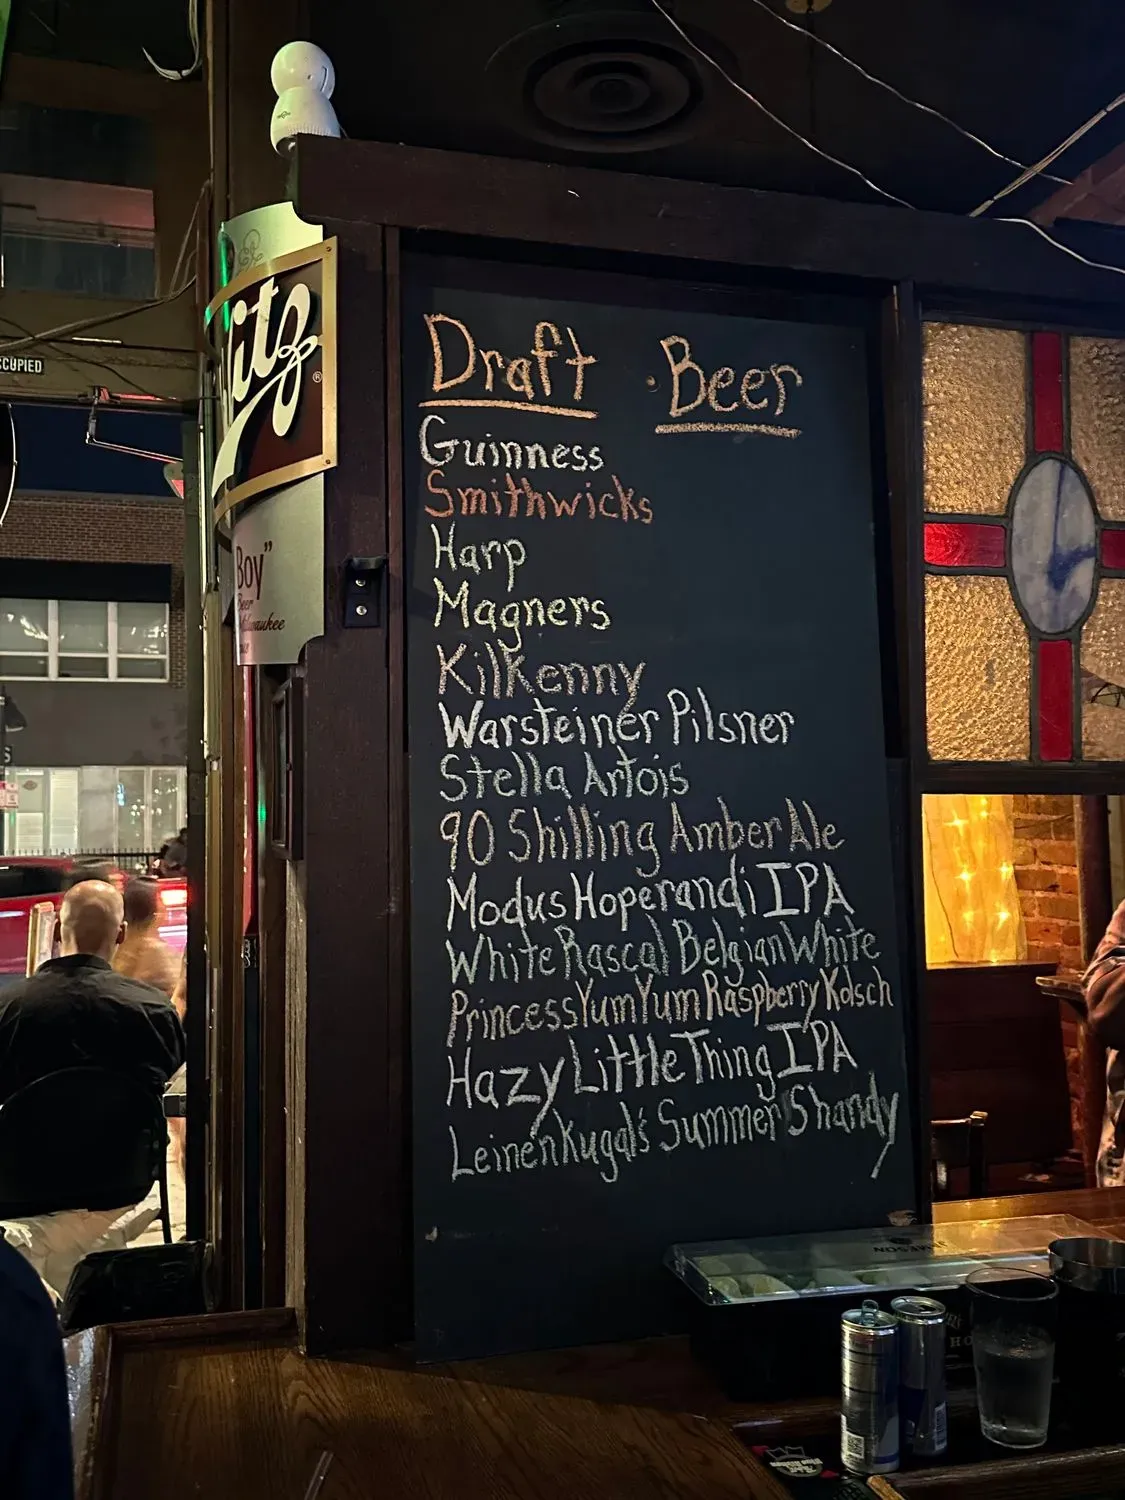 Draft Beer
Guinness
Smithwicks
Harp
Magners
Kilkenny
Warsteiner Pilsner
Stella Artois
90 Shilling Amber Ale
Modus Hoperandi IPA
White Rascal Belgian White
Princess Yum Yum Raspberry Kolsch
Hazy Little Thing IPA
Leinenkugal's Summer Shandy
litz
®
Boy"
Beer
Milwaukee
CCUPIED
JAMESON